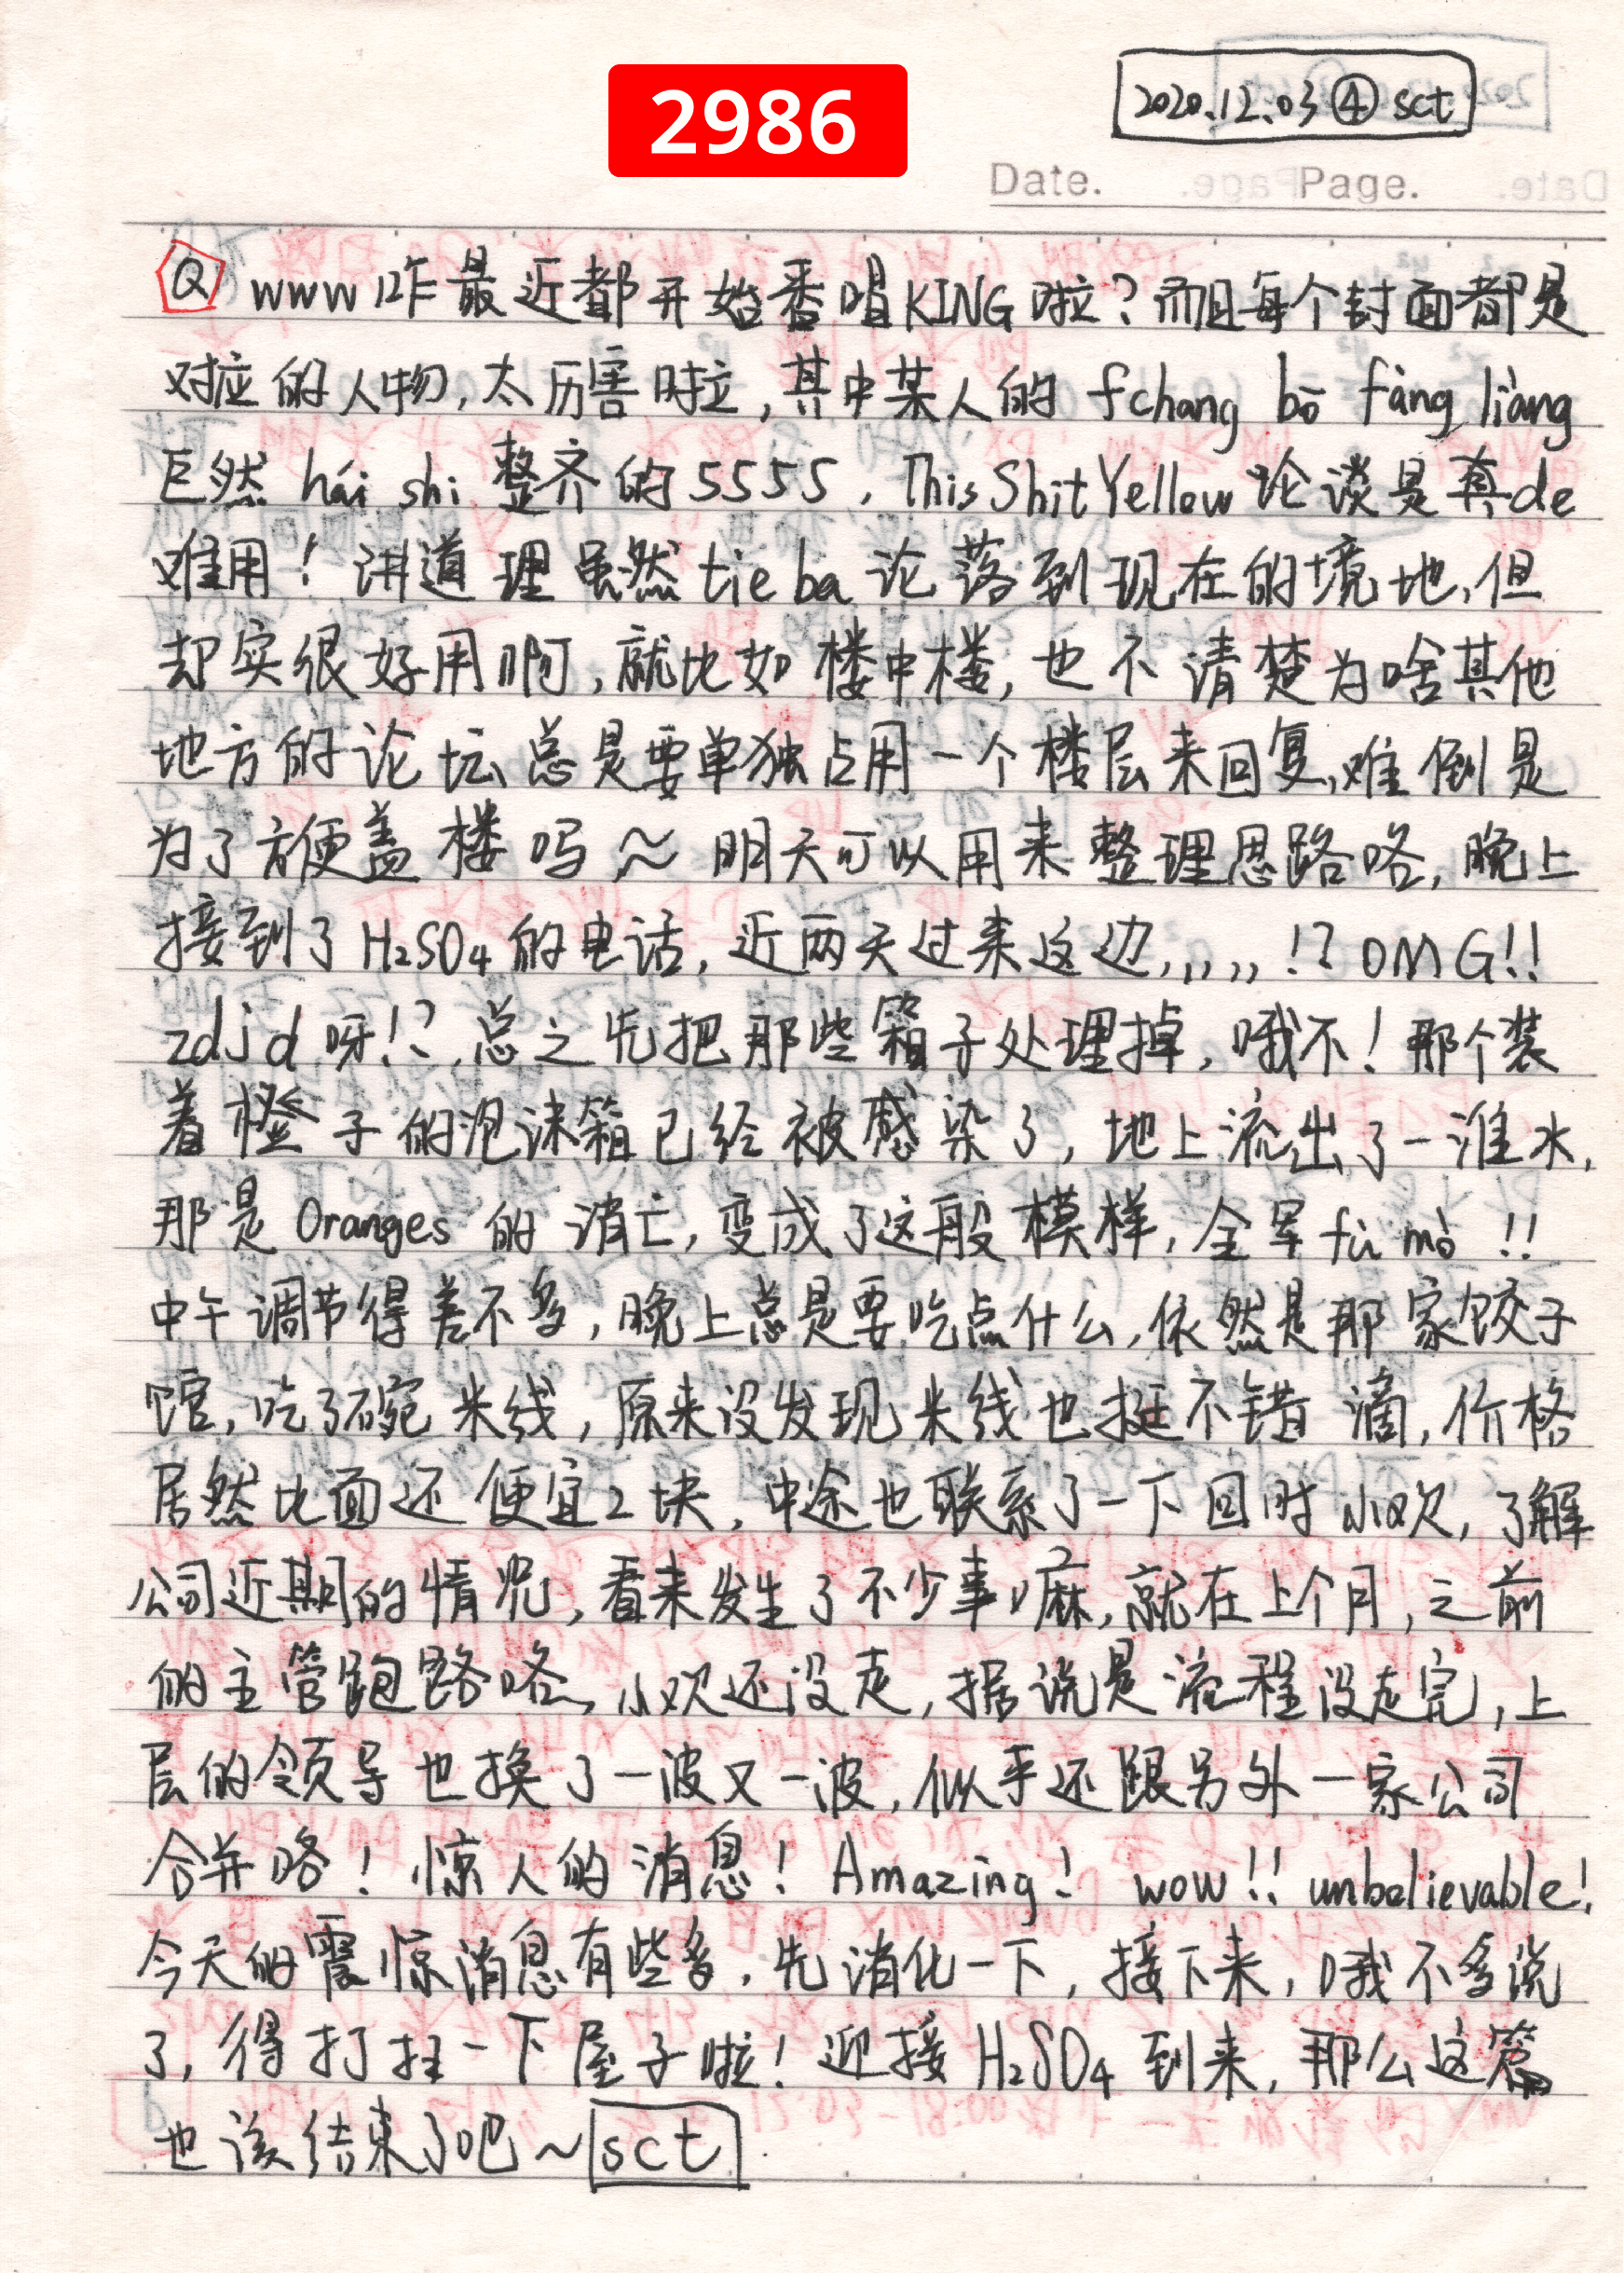 2986
2020.12.03④sct
Date. Page.
Q www咋最近都开始番唱KING啦?而且每个封面都是
对应的人物,太厉害啦,其中某人的fchang bō fàng liàng
巨然 hái shi 整齐的5555,ThisShitYellow论谈是真de
难用!讲道理虽然tieba论落到现在的境地,但
却实很好用啊,就比如楼中楼,也不清楚为啥其他
地方的论坛总是要单独占用一个楼层来回复,难倒是
为了方便盖楼吗~明天可以用来整理思路咯,晚上
接到了H₂SO₄的电话,近两天过来这边,,,,,!?OMG!!
zdjd呀!?,总之先把那些箱子处理掉,哦不!那个装
着橙子的泡沫箱已经被感染了,地上流出了一淮水,
那是Oranges的消亡,变成了这般模样,全军fù mò!!
中午调节得差不多,晚上总是要吃点什么,依然是那家饺子
馆,吃了碗米线,原来没发现米线也挺不错滴,价格
居然比面还便宜2块,中途也联系了一下回时小欢,了解
公司近期的情况,看来发生了不少事嘛,就在上个月,之前
的主管跑路咯,小欢还没走,据说是流程没走完,上
层的领导也换了一波又一波,似乎还跟另外一家公司
合并咯!惊人的消息!Amazing! wow!! unbelievable!
今天的震惊消息有些多,先消化一下,接下来,哦不多说
了,得打扫一下屋子啦!迎接H₂SO₄到来,那么这篇
也该结束了吧~sct